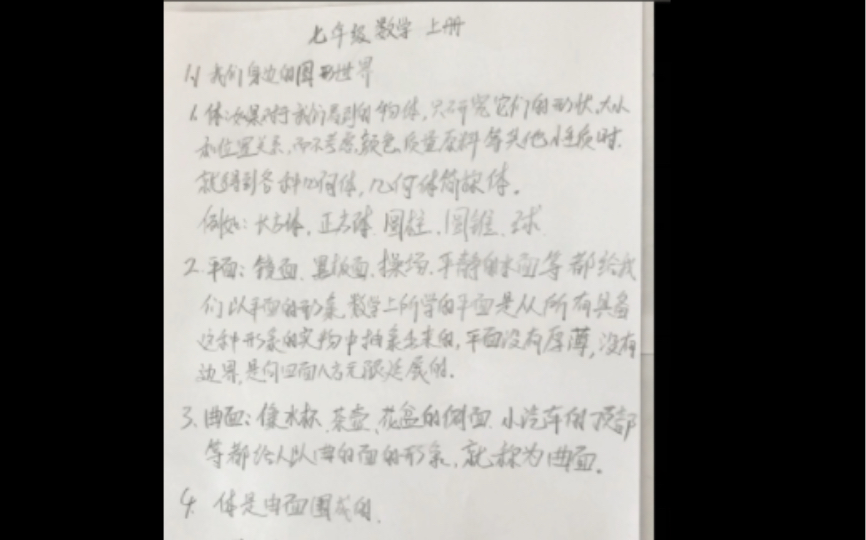 七年级数学 上册
1.1 我们身边的图形世界
1. 体:如果对于我们看到的物体,只研究它们的形状、大小
和位置关系,而不考虑颜色、质量、原料等其他性质时,
就得到各种几何体,几何体简称体。
例如:长方体、正方体、圆柱、圆锥、球.
2. 平面:镜面、黑板面、操场、平静的水面等都给我
们以平面的形象,数学上所学的平面是从所有具备
这种形象的实物中抽象出来的,平面没有厚薄,没有
边界,是向四面八方无限延展的.
3. 曲面:像水杯、茶壶、花盆的侧面、小汽车的顶部
等都给人以曲的面的形象,就称为曲面。
4. 体是由面围成的.